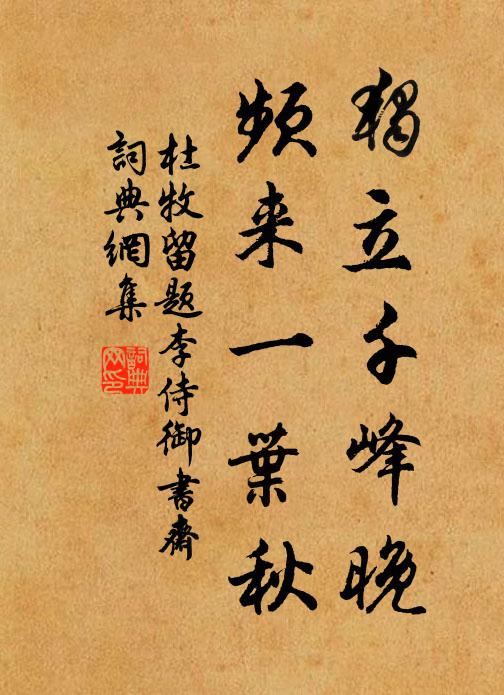 獨立千峰晚
頻来一葉秋
杜牧留題李侍御書齋
詞典網集
詞典网印